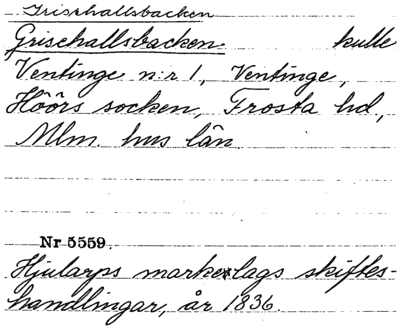 Grisehallsbacken
Grisehallsbacken. kulle
Ventinge n:r 1, Ventinge,
Höörs socken, Frosta hd,
Mlm. hus län
Nr 5559.
Hjularps markelags skiftes-
handlingar, år 1836.